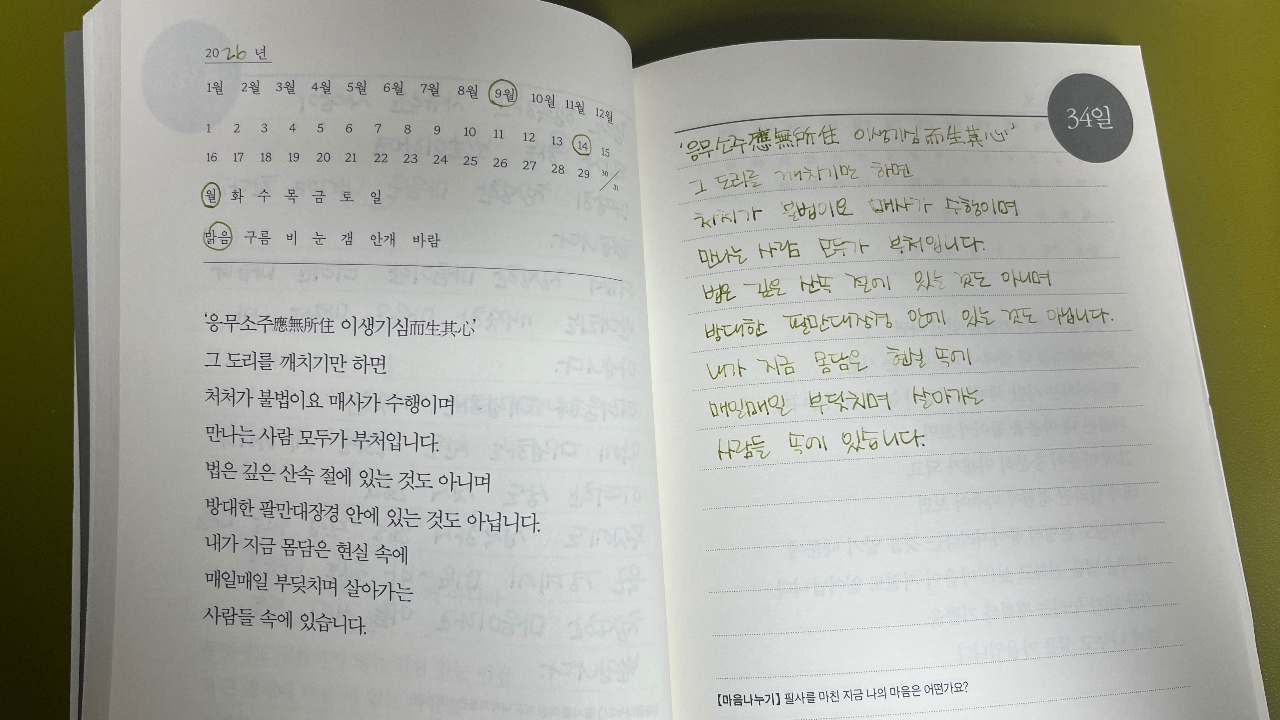 2026년
1월 2월 3월 4월 5월 6월 7월 8월 9월 10월 11월 12월
1 2 3 4 5 6 7 8 9 10 11 12 13 14 15
16 17 18 19 20 21 22 23 24 25 26 27 28 29 30/31
월 화 수 목 금 토 일
맑음 구름 비 눈 갬 안개 바람
'응무소주應無所住 이생기심而生其心'
그 도리를 깨치기만 하면
처처가 불법이요 매사가 수행이며
만나는 사람 모두가 부처입니다.
법은 깊은 산속 절에 있는 것도 아니며
방대한 팔만대장경 안에 있는 것도 아닙니다.
내가 지금 몸담은 현실 속에
매일매일 부딪치며 살아가는
사람들 속에 있습니다.
34일
'응무소주應無所住 이생기심而生其心'
그 도리를 깨치기만 하면
처처가 불법이요 매사가 수행이며
만나는 사람 모두가 부처입니다.
법은 깊은 산속 절에 있는 것도 아니며
방대한 팔만대장경 안에 있는 것도 아닙니다.
내가 지금 몸담은 현실 속에
매일매일 부딪치며 살아가는
사람들 속에 있습니다.
[마음나누기] 필사를 마친 지금 나의 마음은 어떤가요?